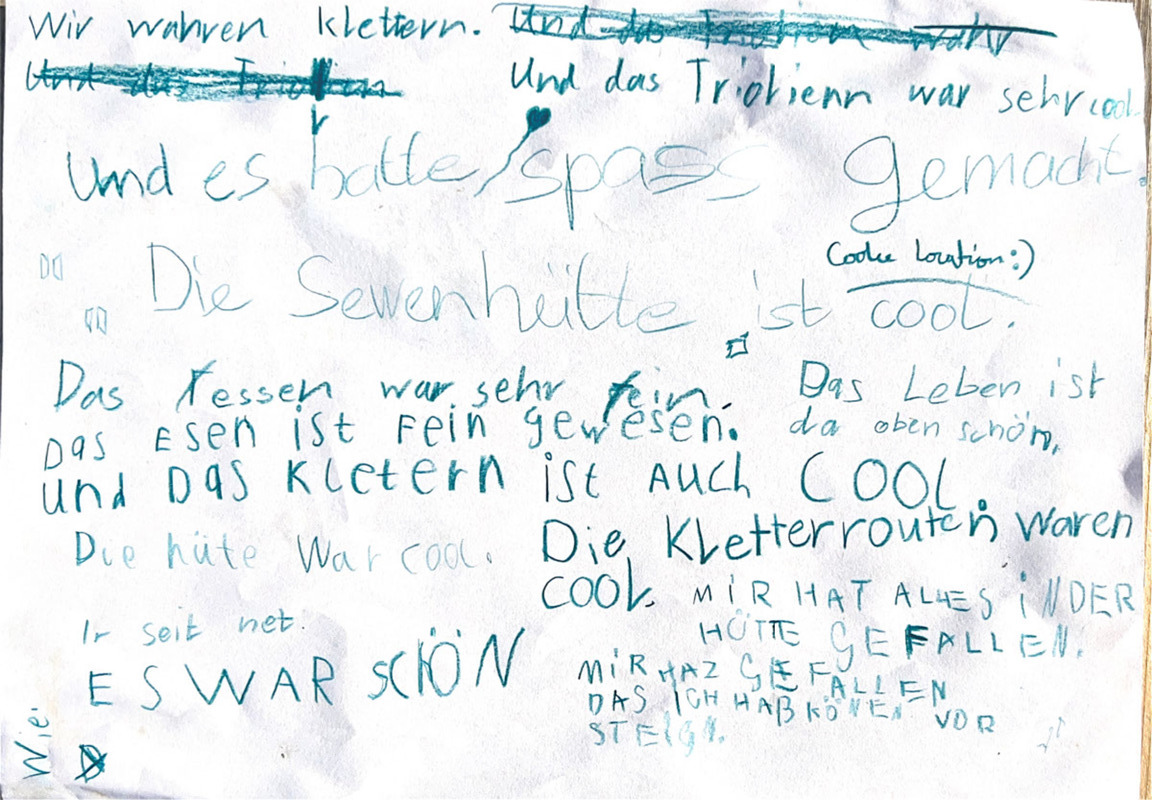 Wir wahren klettern. Und das Triohienn wahr
Und das Triohien Und das Triohienn war sehr cool.
Und es hatte spass gemacht.
Coole Location:)
Die Sewenhütte ist cool.
Das essen war sehr fein. Das Leben ist
Das Esen ist Fein gewesen. da oben schön,
und Das Kletern ist Auch COOL.
Die hüte War cool. Die Kletterrouten waren
cool. MIR HAT ALLES iN DER
Ir seit net. HÜTTE GEFALLEN.
ES WAR SCHÖN MiR HAZ GEFALLEN
DAS ICH HAB KÖNEN VOR
STEIGN.
Wie